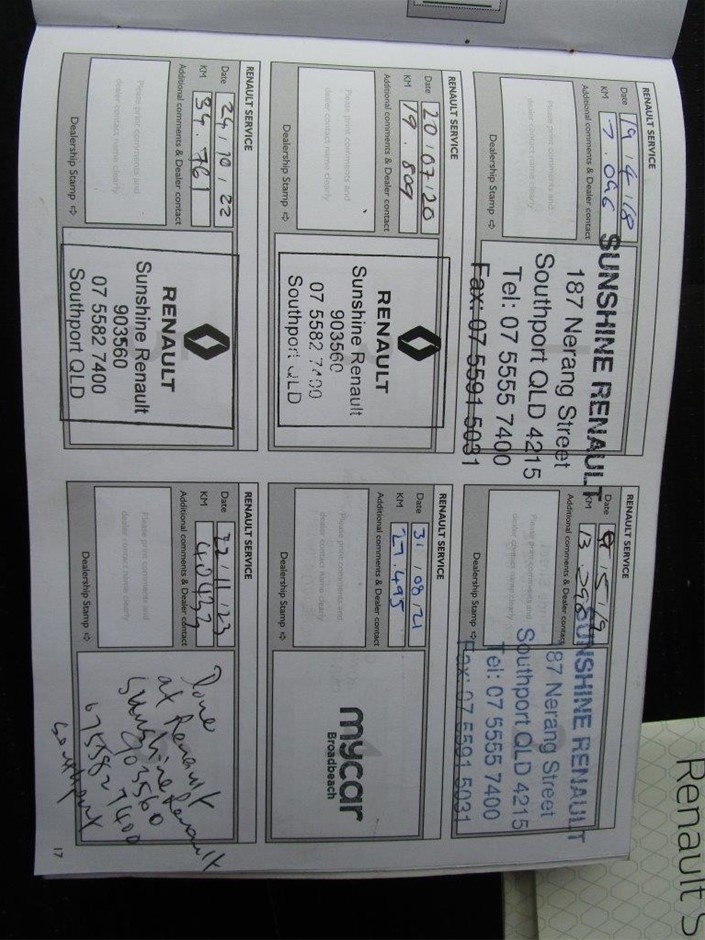 RENAULT SERVICE
Date 19/4/18
KM 7.096
Additional comments & Dealer contact
Please print comments and
dealer contact name clearly
Dealership Stamp ⇨
SUNSHINE RENAULT
187 Nerang Street
Southport QLD 4215
Tel: 07 5555 7400
Fax: 07 5591 5031
RENAULT SERVICE
Date /5/19
KM 13.296
Additional comments & Dealer contact
Please print comments and
dealer contact name clearly
Dealership Stamp ⇨
SUNSHINE RENAULT
187 Nerang Street
Southport QLD 4215
Tel: 07 5555 7400
Fax: 07 5591 5031
RENAULT SERVICE
Date 20/07/20
KM 19.809
Additional comments & Dealer contact
Please print comments and
dealer contact name clearly
Dealership Stamp ⇨
RENAULT
Sunshine Renault
903560
07 5582 7400
Southport QLD
RENAULT SERVICE
Date 31/08/21
KM 27.495
Additional comments & Dealer contact
Please print comments and
dealer contact name clearly
Dealership Stamp ⇨
mycar
Broadbeach
RENAULT SERVICE
Date 24/10/22
KM 34.761
Additional comments & Dealer contact
Please print comments and
dealer contact name clearly
Dealership Stamp ⇨
RENAULT
Sunshine Renault
903560
07 5582 7400
Southport QLD
RENAULT SERVICE
Date 22/11/23
KM 40433
Additional comments & Dealer contact
Please print comments and
dealer contact name clearly
Dealership Stamp ⇨
Done
at Renault
Sunshine Renault
903560
0755827400
Southport
17
Renault S